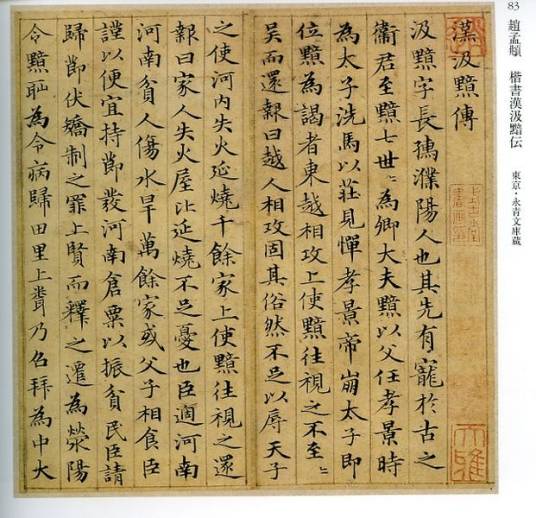 83 趙孟頫 楷書漢汲黯伝 東京・永青文庫蔵
漢汲黯傳
汲黯字長孺濮陽人也其先有寵於古之
衛君至黯七世〻為卿大夫黯以父任孝景時
為太子洗馬以莊見憚孝景帝崩太子即
位黯為謁者東越相攻上使黯往視之不至〻
吳而還報曰越人相攻固其俗然不足以辱天子
之使河内失火延燒千餘家上使黯往視之還
報曰家人失火屋比延燒不足憂也臣過河南
河南貧人傷水旱萬餘家或父子相食臣
謹以便宜持節發河南倉粟以振貧民臣請
歸節伏矯制之罪上賢而釋之遷為滎陽
令黯恥為令病歸田里上聞乃召拜為中大
大雅